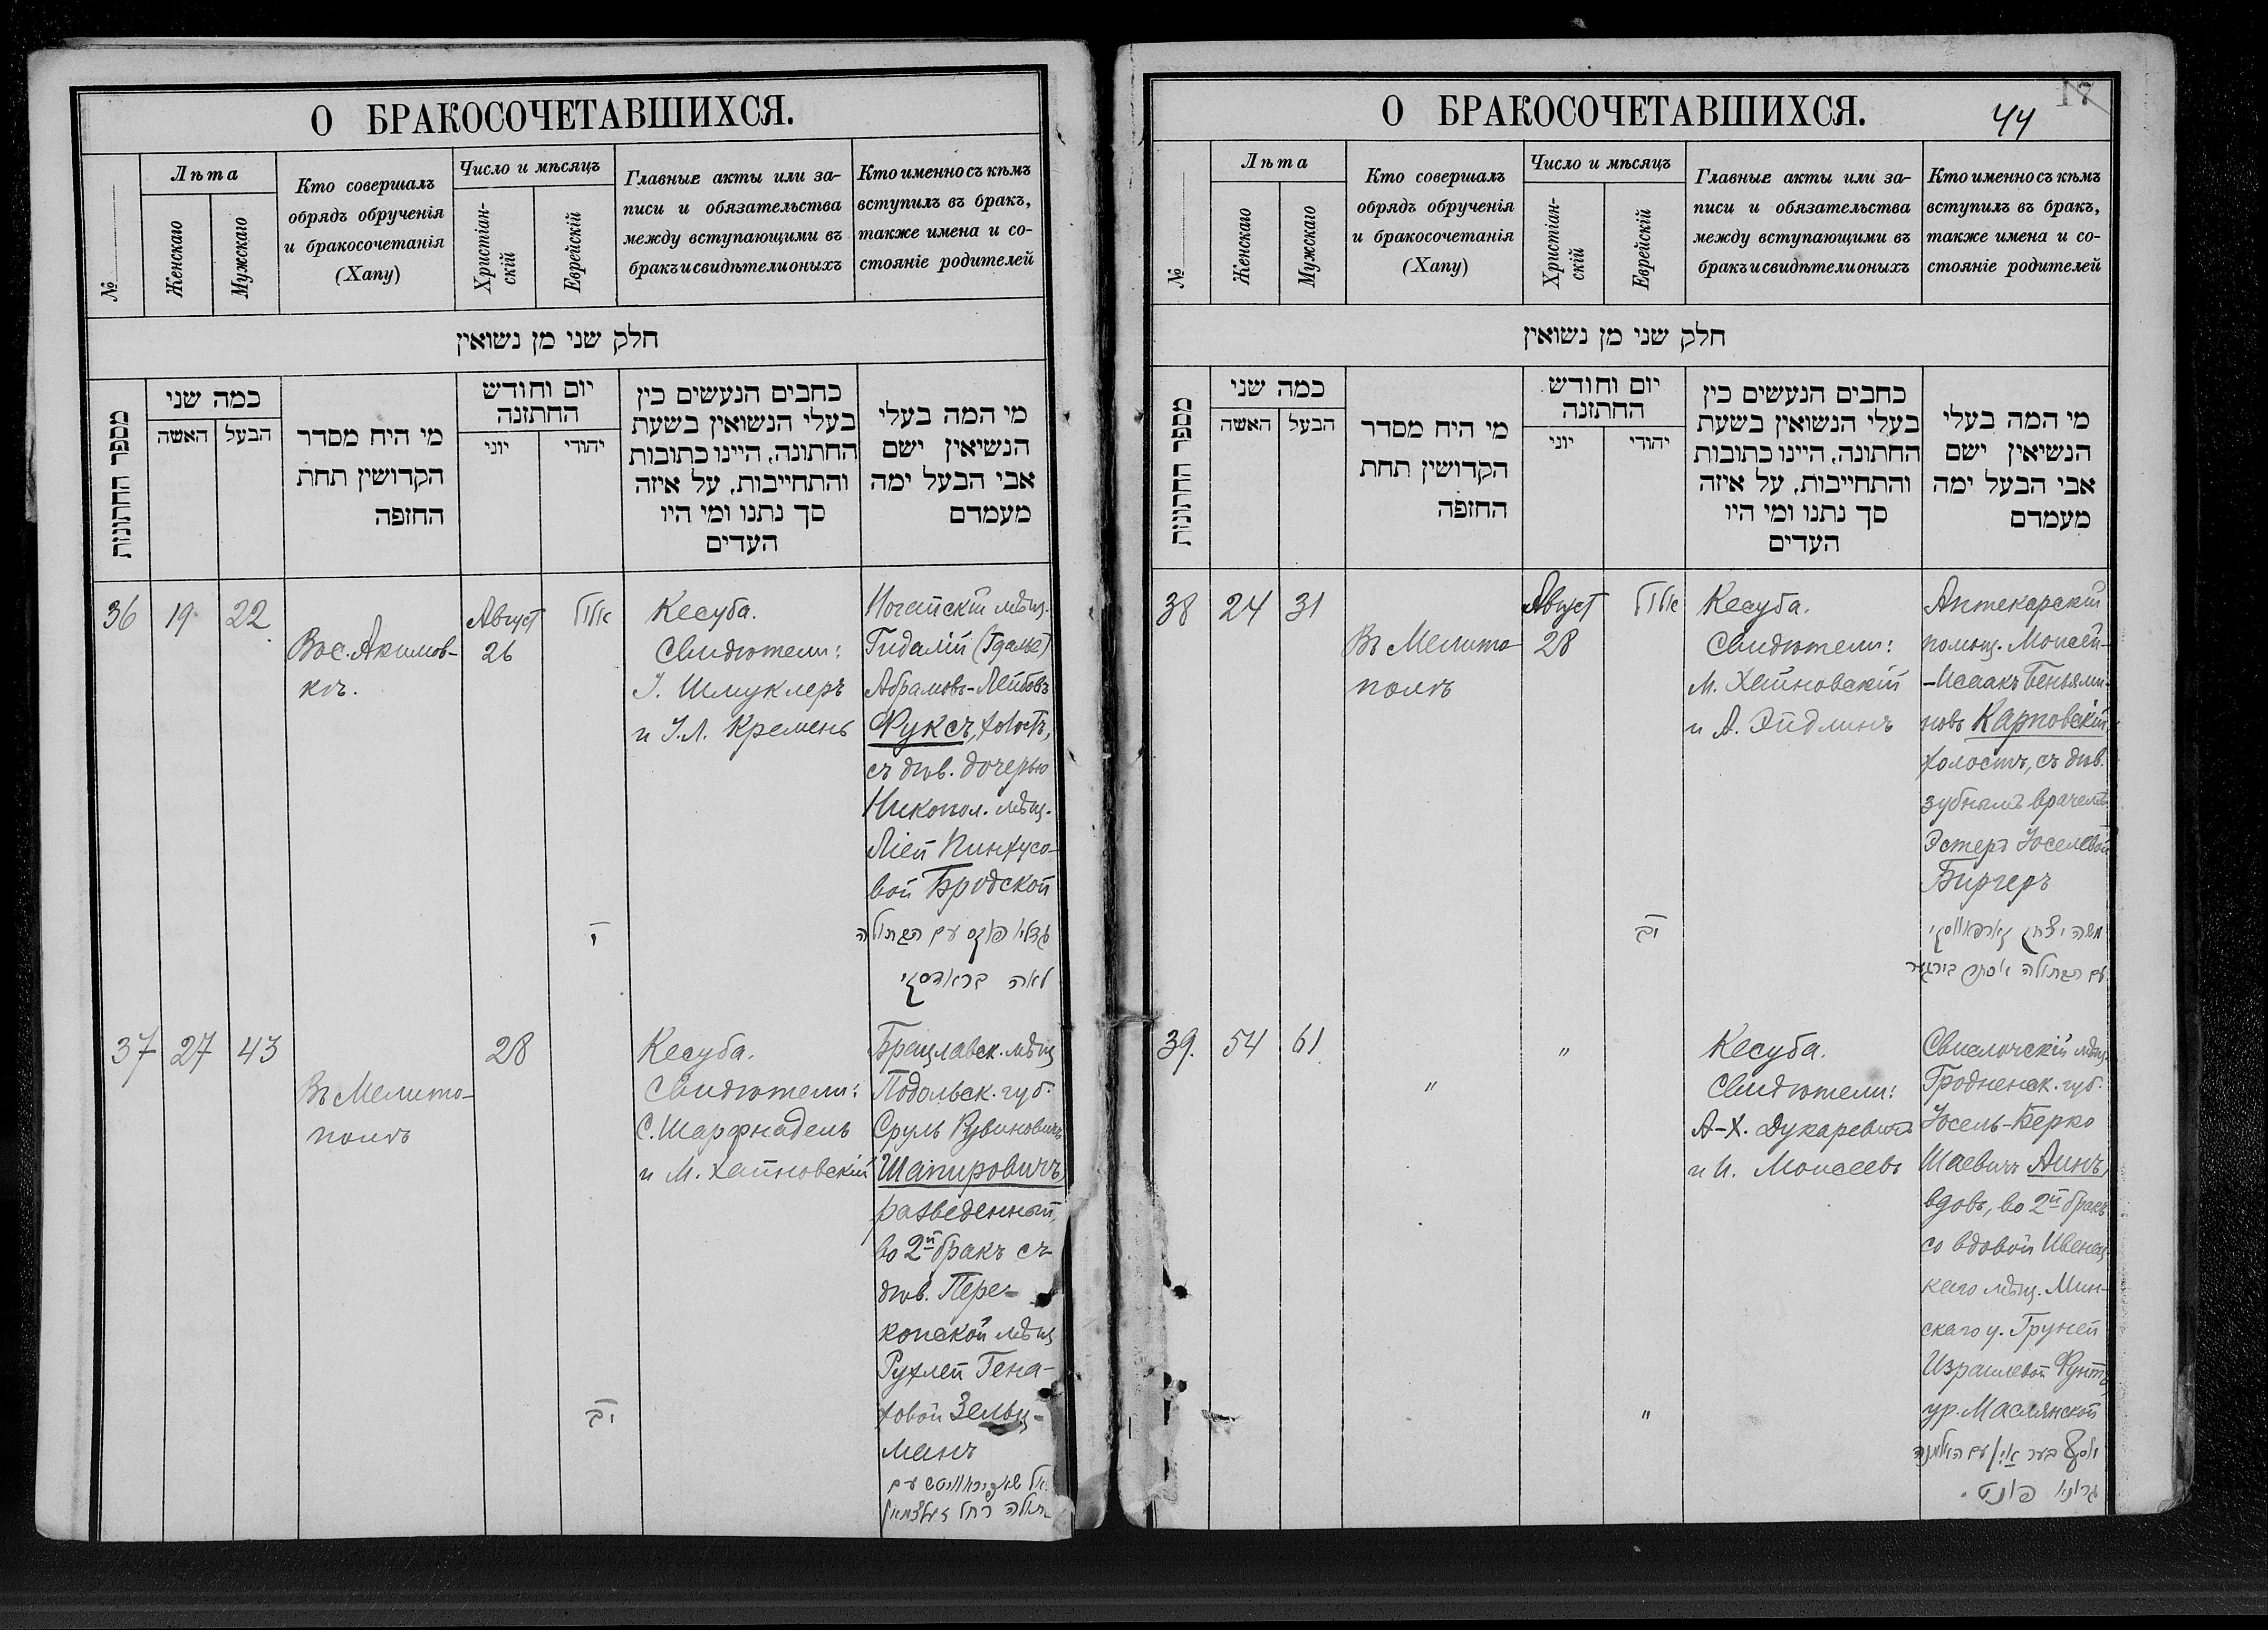 О БРАКОСОЧЕТАВШИХСЯ.
№
Лѣта
Женскаго
Мужскаго
Кто совершалъ
обрядъ обрученія
и бракосочетанія
(Хапу)
Число и мѣсяцъ
Христіан-
скій
Еврейскій
Главные акты или за-
писи и обязательства
между вступающими въ
бракъ и свидѣтели оныхъ
Кто именно съ кѣмъ
вступилъ въ бракъ,
также имена и со-
стояніе родителей
חלק שני מן נשואין
מספר החתונות
כמה שני
האשה
הבעל
מי היח מסדר
הקדושין תחת
החופה
יום וחודש
החתונה
יוני
יהודי
כתבים הנעשים בין
בעלי הנשואין בשעת
החתונה, היינו כתובות
והתחייבות, על איזה
סך נתנו ומי היו
העדים
מי המה בעלי
הנשיאין ישם
אבי הבעל ימה
מעמדם
36
19
22
Во с. Акимов-
кѣ.
Август
26
אלול
י
Кесуба.
Свидѣтели:
І. Шмуклеръ
и І. Л. Кремень
Ногайскій мѣщ.
Гидалій (Гдалье)
Абрамовъ-Лейбовъ
Фуксъ, холостъ,
съ дѣв. дочерью
Никопол. мѣщ.
Ліей Пинхусо-
вой Бродской
גדליא פוקס עם הבתולה
לאה בראדסקי
37
27
43
Въ Мелито-
полѣ
28
יב
Кесуба.
Свидѣтели:
С. Шарфнадель
и М. Хайновскій
Брацлавск. мѣщ.
Подольск. губ.
Сруль Рувиновичъ
Шапировичъ,
разведенный,
во 2й бракъ съ
дѣв. Пере-
копской мѣщ.
Рухлей Гена-
ховой Зельц-
манъ
שאפיראוויטש עם
רחל זעלצמאן
О БРАКОСОЧЕТАВШИХСЯ.
44
17
№
Лѣта
Женскаго
Мужскаго
Кто совершалъ
обрядъ обрученія
и бракосочетанія
(Хапу)
Число и мѣсяцъ
Христіан-
скій
Еврейскій
Главные акты или за-
писи и обязательства
между вступающими въ
бракъ и свидѣтели оныхъ
Кто именно съ кѣмъ
вступилъ въ бракъ,
также имена и со-
стояніе родителей
חלק שני מן נשואין
מספר החתונות
כמה שני
האשה
הבעל
מי היח מסדר
הקדושין תחת
החופה
יום וחודש
החתונה
יוני
יהודי
כתבים הנעשים בין
בעלי הנשואין בשעת
החתונה, היינו כתובות
והתחייבות, על איזה
סך נתנו ומי היו
העדים
מי המה בעלי
הנשיאין ישם
אבי הבעל ימה
מעמדם
38
24
31
Въ Мелито-
полѣ
Август
28
אלול
יב
Кесуба.
Свидѣтели:
М. Хайновскій
и А. Эйдлинъ
Аптекарскій
помощ. Моисей-
-Исаакъ Беньями-
новъ Карповскій,
холостъ, съ дѣв.
зубнымъ врачемъ
Эстеръ Іоселевой
Биргеръ
משה יצחק קארפאווסקי
עם הבתולה אסתר בירגער
39.
54
61
"
"
"
Кесуба.
Свидѣтели:
А-Х. Дукаревичъ
и И. Моисеевъ
Свислочскій мѣщ.
Гродненск. губ.
Іосель-Берко
Шаевичъ Аинъ,
вдовъ, во 2й бракъ
со вдовой Ивенец-
каго мѣщ. Мин-
скаго у. Груней
Израилевой Фунтъ,
ур. Маслянской
יוסף בער אין עם האלמנה
גרוניא פונט.